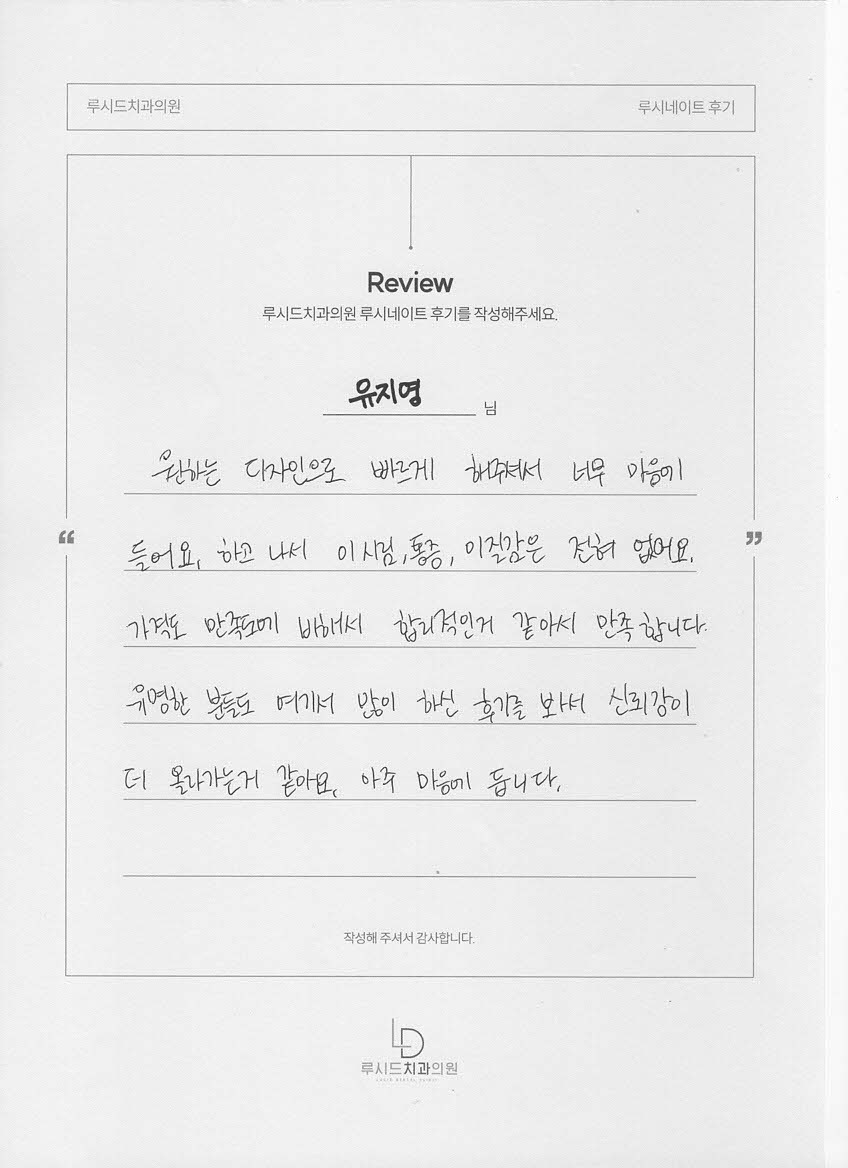 루시드치과의원
루시네이트 후기
Review
루시드치과의원 루시네이트 후기를 작성해주세요.
유지영 님
원하는 디자인으로 빠르게 해주셔서 너무 마음에
“
”
들어요, 하고 나서 이시림, 통증, 이질감은 전혀 없어요,
가격도 만족도에 비해서 합리적인거 같아서 만족합니다.
유명한 분들도 여기서 많이 하신 후기를 봐서 신뢰감이
더 올라가는거 같아요, 아주 마음에 듭니다,
작성해 주셔서 감사합니다.
LD
루시드치과의원
LUCID DENTAL CLINIC